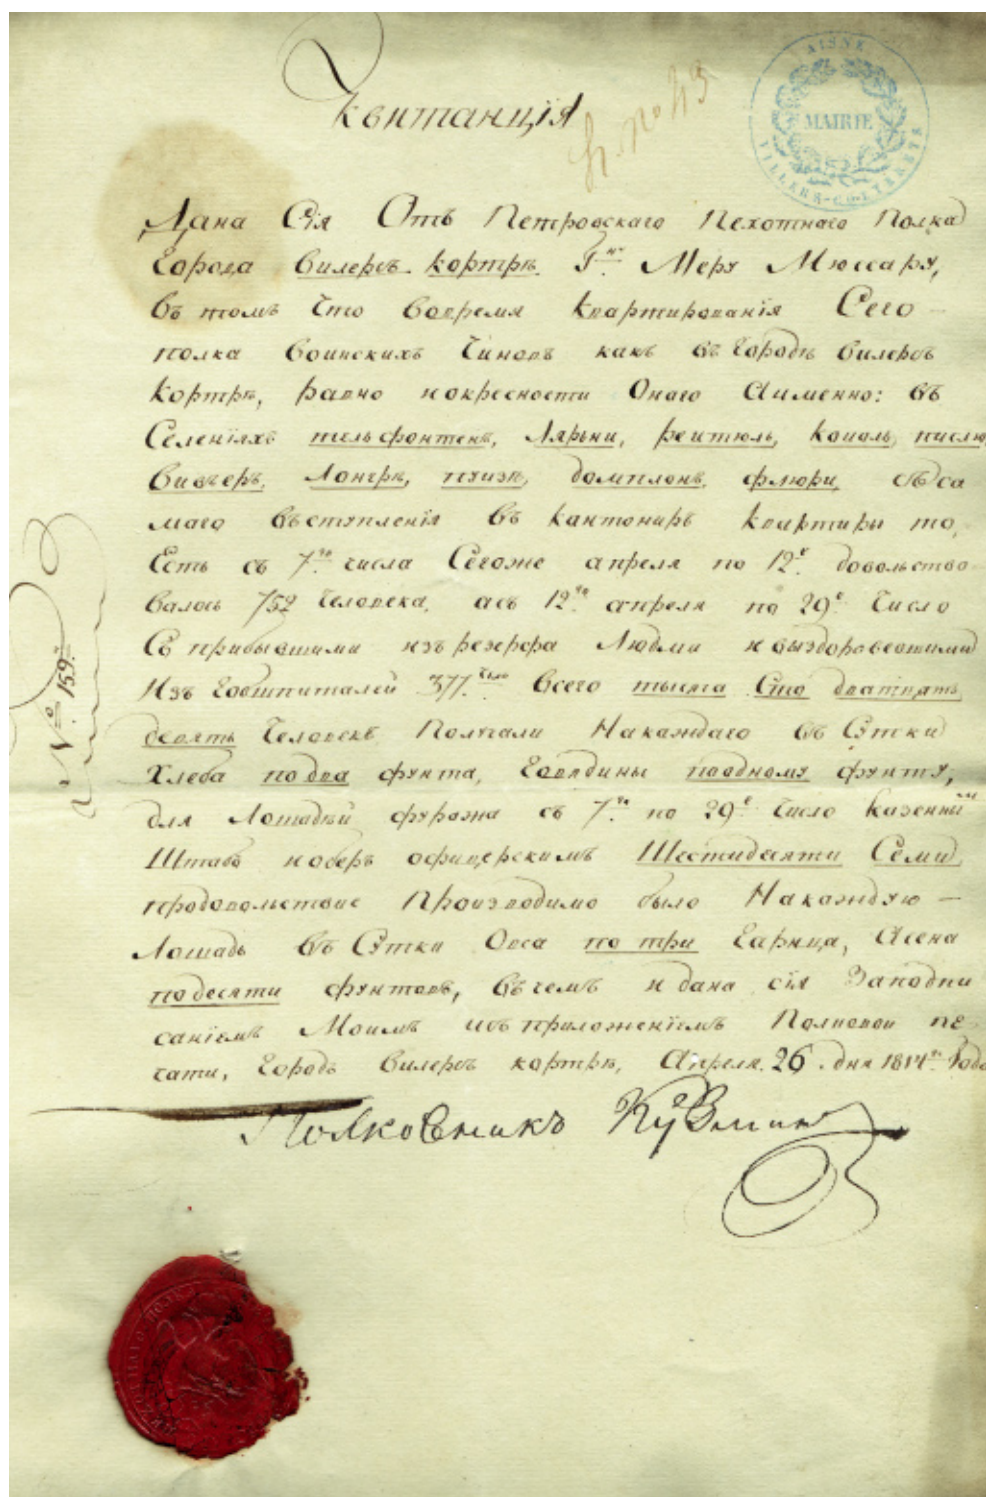 Квитанція
AISNE
MAIRIE
VILLERS-COTTERETS
Дана Сія Отъ Петровскаго Пехотнаго Полка
Города Вилеръ-кортръ. Г-ну Меру Мюссару,
въ томъ что вовремя квартированія Сего
полка воинскихъ чиновъ какъ въ городѣ вилеръ
кортрѣ, равно иокресности Онаго Аименно: въ
Селеніяхъ
Лонгрѣ, флюри,
маго въступленія въ кантониръ квартиры то,
Есть съ 7го числа Сегоже апреля по 12е довольство
валось 752 человека, асъ 12го апреля по 29е число
Съ прибывшими изъ резерфа Людми и выздоровевшими
Изъ Гобшпиталей 377. всего тысяча Сто дватцать
девять человекъ Получали Накаждаго въ Сутки
хлеба по два фунта, говядины поодному фунту,
для Лошадей фуража съ 7го по 29е число казенны
Штабъ иоберъ офицерскимъ Шестидесяти Семи
продовольствие Производимо было Накаждую —
Лошадь въ Сутки Овса по три гарнца, Асена
подесяти фунтовъ, въчемъ и дана сія Заподпи
саніемъ Моимъ исъприложеніемъ Полковой пе-
чати, городъ вилеръ кортрѣ, Апреля 26. дня 1814го Года
Полковникъ Кузмин
№ 159.